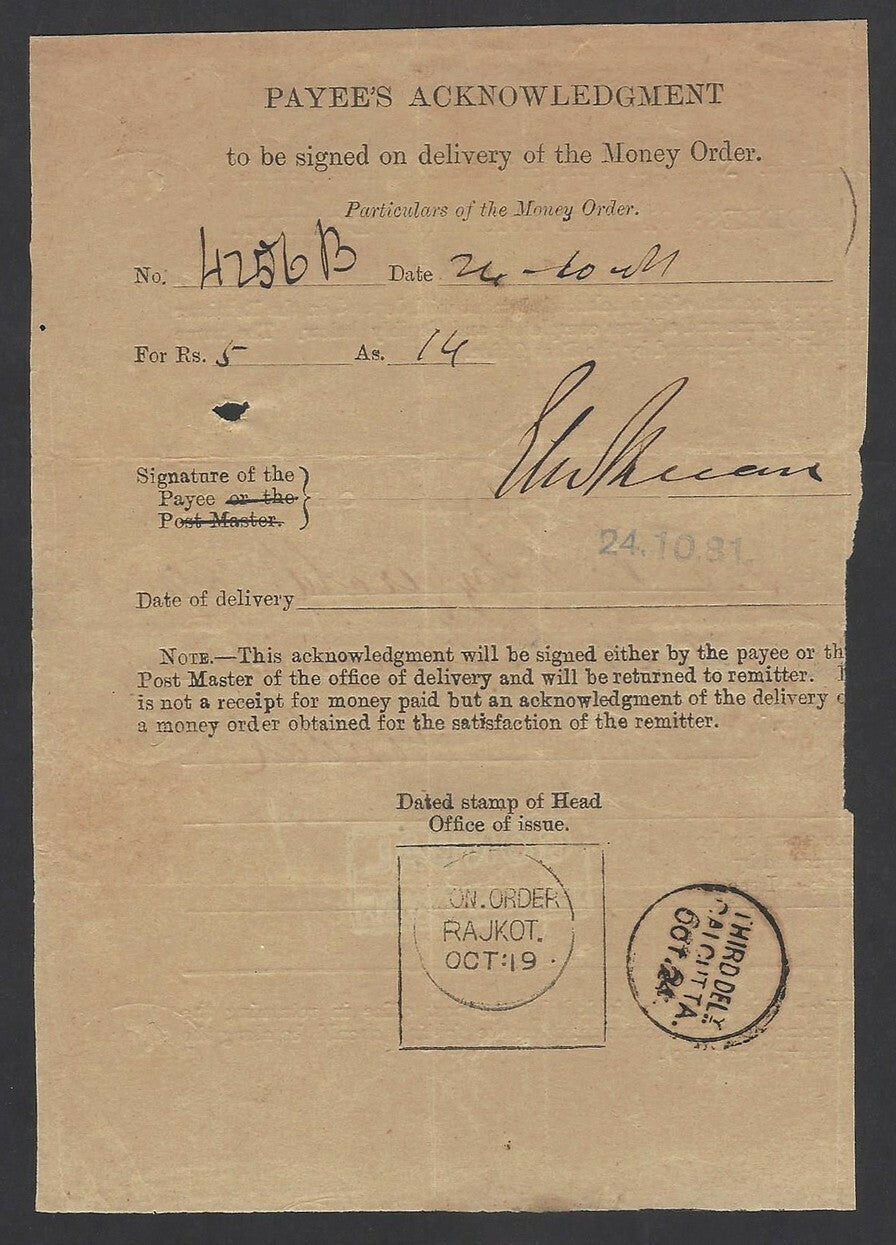 PAYEE'S ACKNOWLEDGMENT
to be signed on delivery of the Money Order.
Particulars of the Money Order.
No. 4256 B Date 24-10-81
For Rs. 5 As. 14
Signature of the
Payee or the
Post Master.
24.10.81.
Date of delivery
NOTE.—This acknowledgment will be signed either by the payee or th
Post Master of the office of delivery and will be returned to remitter.
is not a receipt for money paid but an acknowledgment of the delivery
a money order obtained for the satisfaction of the remitter.
Dated stamp of Head
Office of issue.
ON. ORDER
RAJKOT.
OCT:19
THIRD DELY
CALCUTTA.
OCT.24.